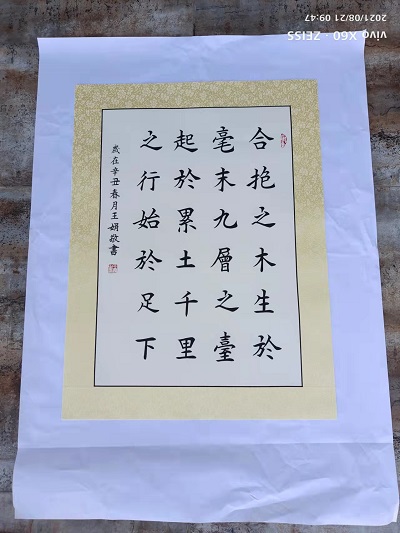 合抱之木生於
毫末九層之臺
起於累土千里
之行始於足下
歲在辛丑春月王娟敬書
vivo X60 · ZEISS
2021/08/21 09:47